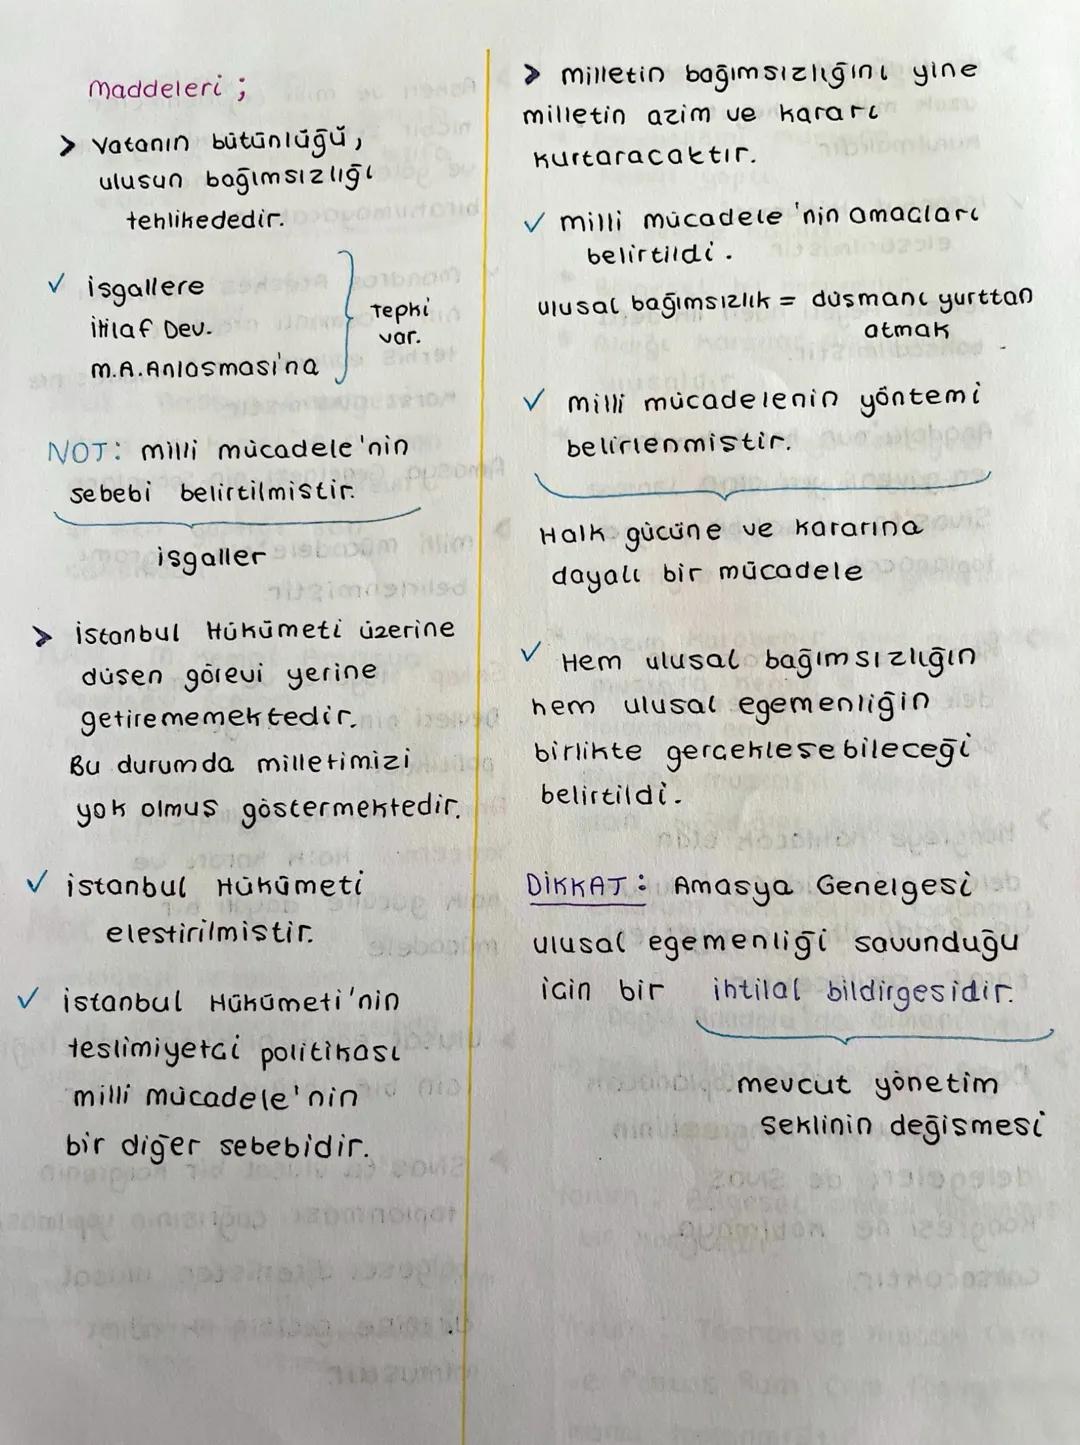 Maddeleri ;
> Vatanın bütünlüğü,
ulusun bağımsızlığı
tehlikededir.
✓ isgallere
itilaf Dev.
M.A.Anlasması'na
Tepki
var.
NOT: milli mücadele'nin
sebebi belirtilmistir.
isgaller
> istanbul Hükümeti üzerine
düsen görevi yerine
getirememektedir.
Bu durumda milletimizi
yok olmus göstermektedir.
✓ istanbul Hükümeti
elestirilmistir.
✓ istanbul Hükümeti'nin
teslimiyetci politikası
milli mücadele'nin
bir diğer sebebidir.
> milletin bağımsızlığını yine
milletin azim ve kararı
kurtaracaktır.
✓ milli mücadele'nin amacları
belirtildi.
ulusal bağımsızlık = düsmanı yurttan
atmak
✓ milli mücadelenin yöntemi
belirlenmistir.
Halk gücüne ve kararına
dayalı bir mücadele
✓ Hem ulusal bağımsızlığın
hem ulusal egemenliğin
birlikte gerceklesebileceği
belirtildi.
DİKKAT: Amasya Genelgesi
ulusal egemenliği savunduğu
icin bir ihtilal bildirgesidir.
mevcut yönetim
seklinin değismesi